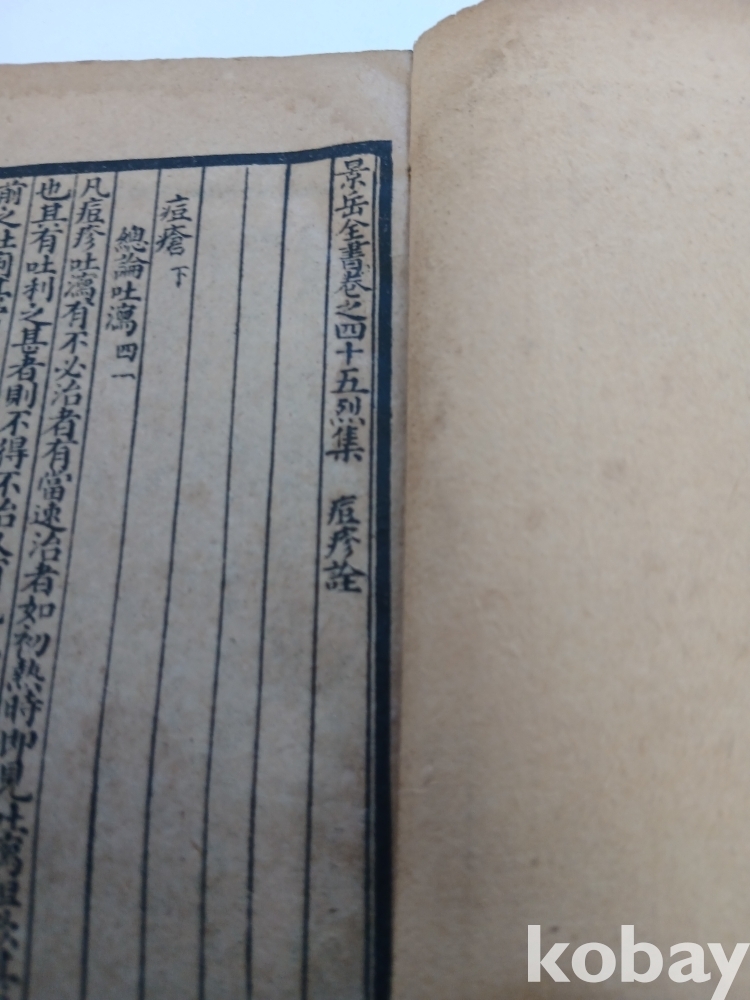 景岳全書卷之四十五烈集 痘疹詮
痘瘡 下
總論吐瀉 四一
凡痘疹吐瀉有不必治者有當速治者如初熱時即見吐瀉
也其有吐利之甚者則不得不治
前之吐
kobay